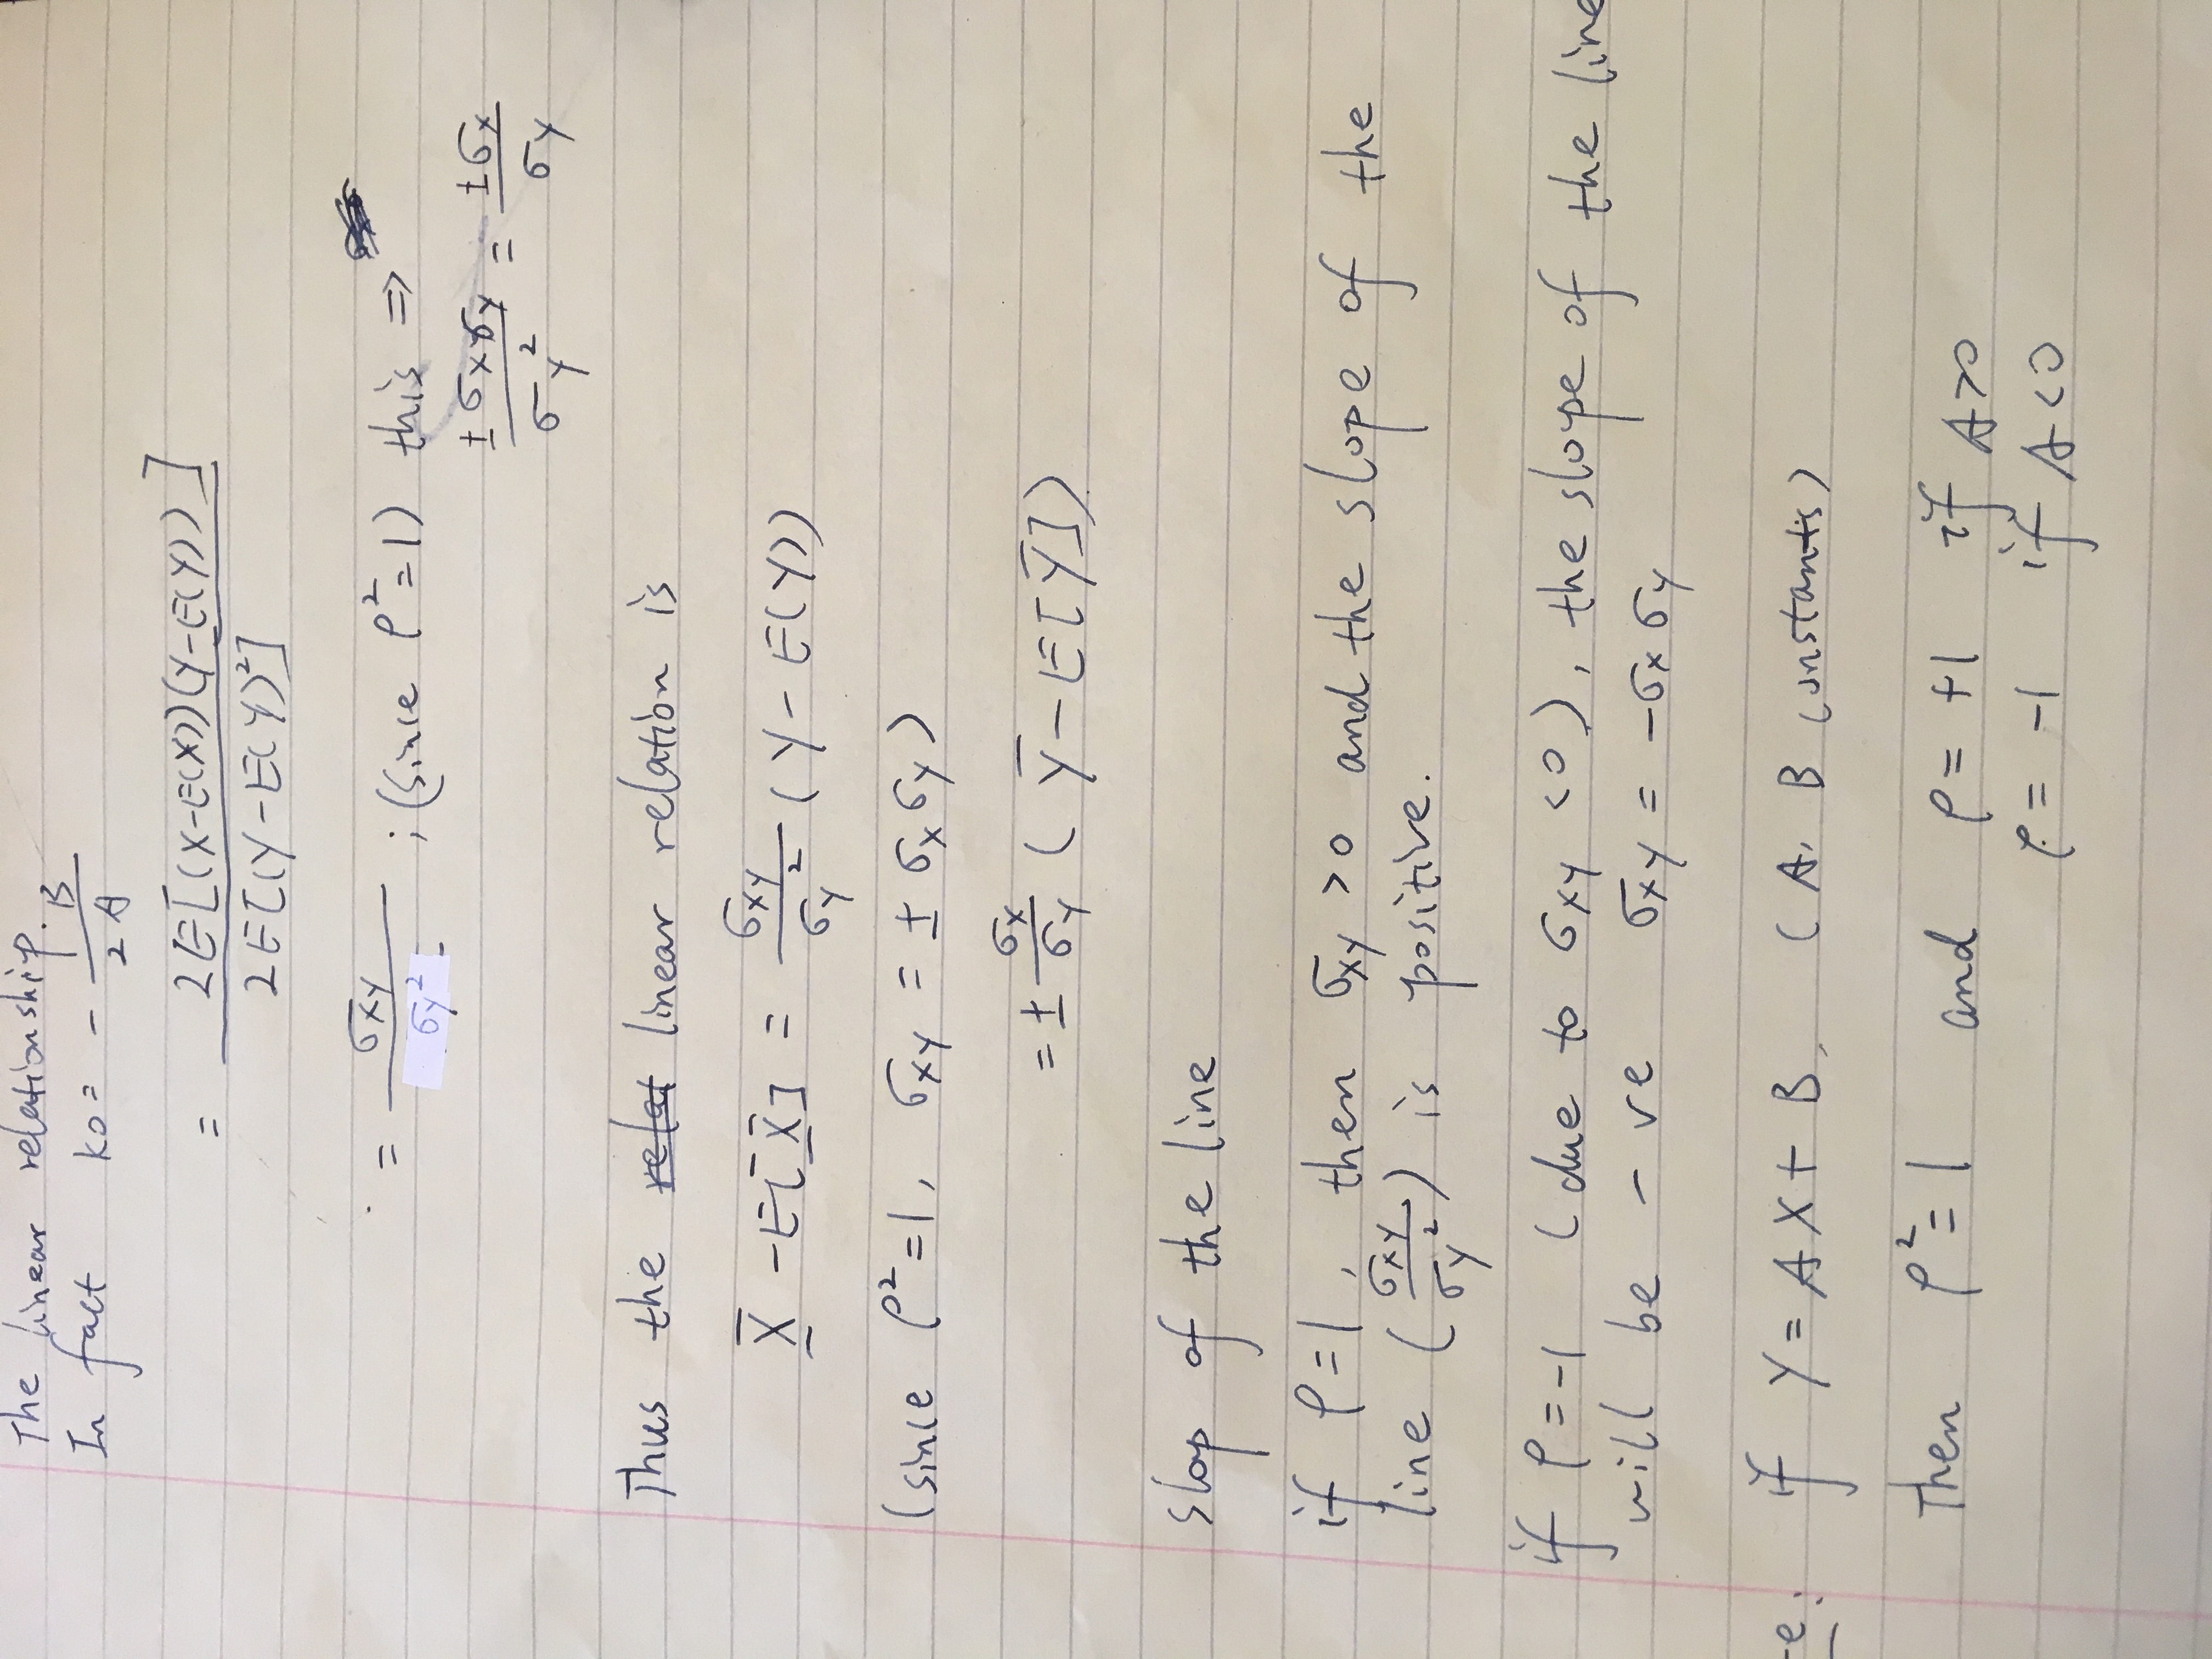 The linear relationship.
In fact k0 = - B / 2A
= 2E[(X-E(X))(Y-E(Y))] / 2E[(Y-E(Y)²]
= σxy / σy² ; (since ρ²=1) this ⇒
± σxσy / σy² = ±σx / σy
Thus the relat linear relation is
X̄ - E[X̄] = σxy / σy² (Y - E(Y))
(since ρ²=1, σxy = ± σxσy)
= ± σx / σy (Ȳ - E[Ȳ])
slop of the line
if ρ=1, then σxy >0 and the slope of the
line (σxy / σy²) is positive.
if ρ=-1 (due to σxy <0), the slope of the line
will be -ve σxy = -σxσy
-e: if Y=AX+B, (A, B constants)
Then ρ²=1 and ρ= +1 if A>0
ρ= -1 if A<0